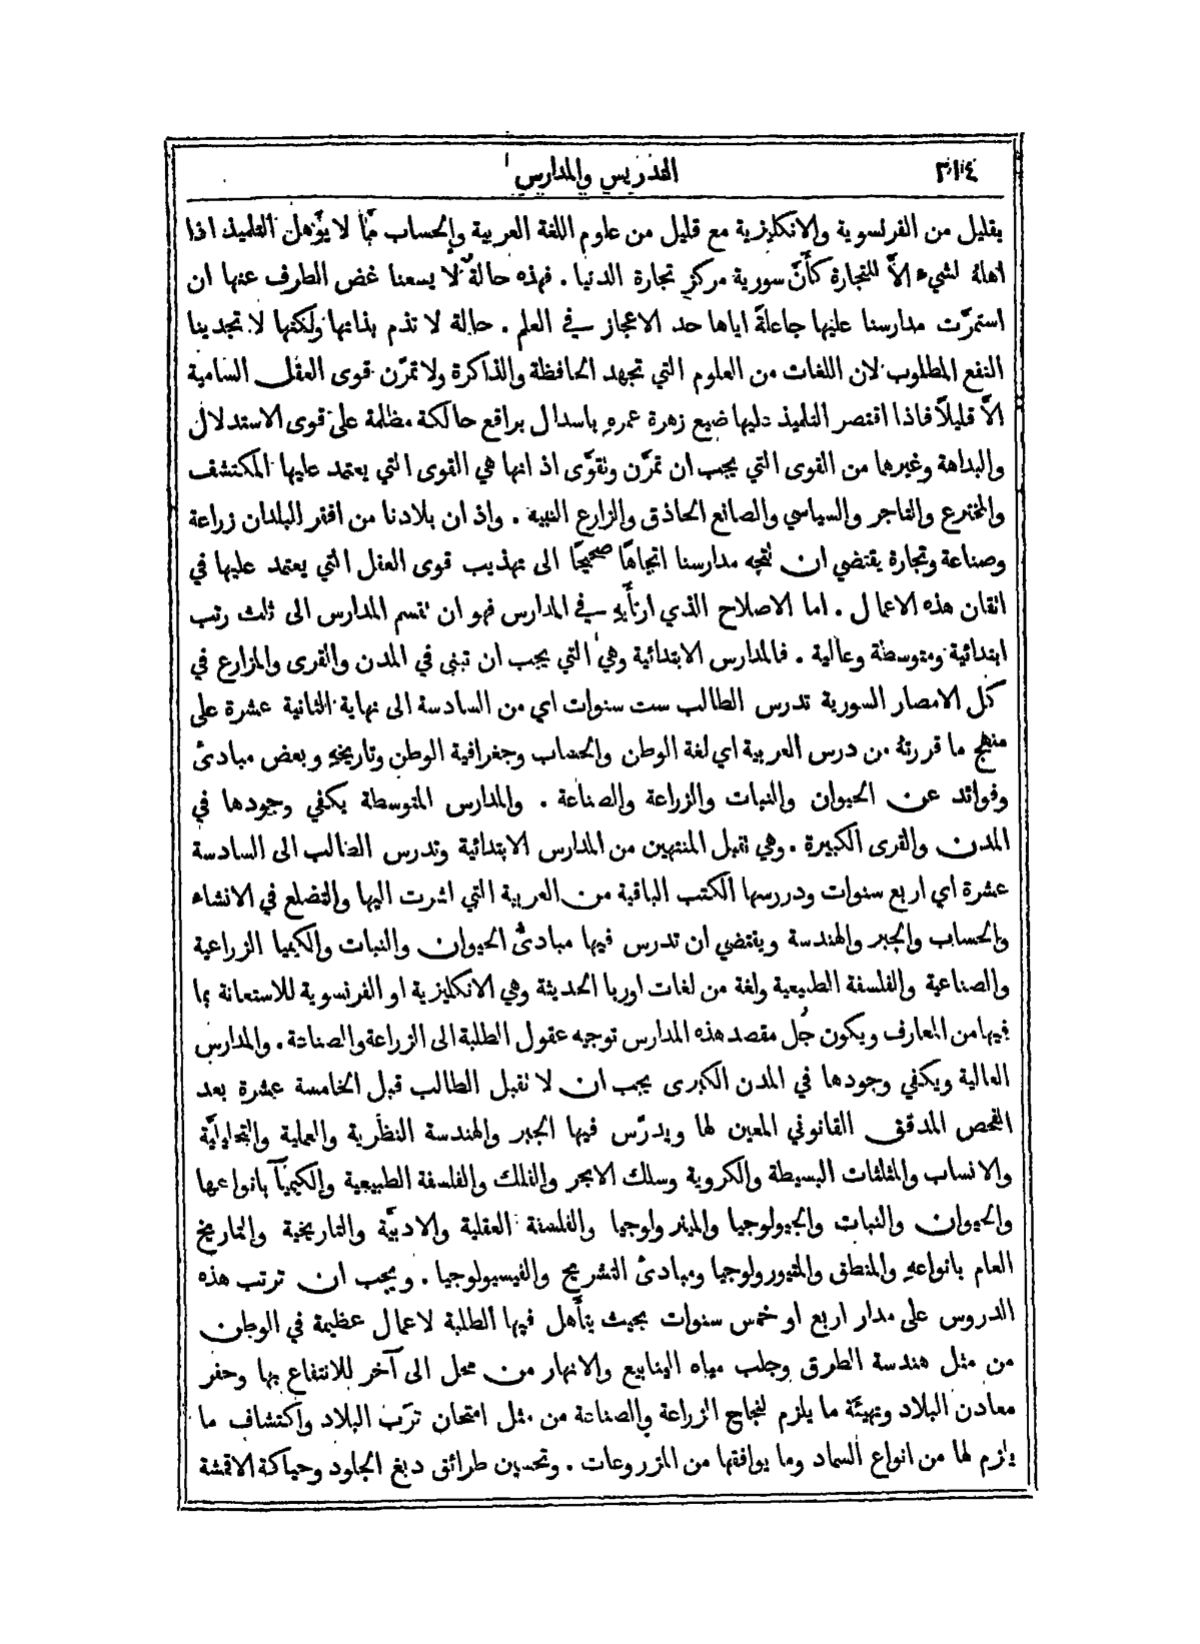 ٣١٤ التدريس والمدارس
بقليل من الفرنسوية والانكليزية مع قليل من علوم اللغة العربية والحساب ممَّا لا يؤَّهل التلميذ اذا
اهلهُ لشيء الاَّ للتجارة كأَنَّ سورية مركز تجارة الدنيا . فهذه حالةٌ لا يسعنا غض الطرف عنها ان
استمرَّت مدارسنا عليها جاعلةً اياها حد الاعجاز في العلم . حالة لا تذم بذاتها ولكنها لا تجدينا
النفع المطلوب لان اللغات من العلوم التي تجهد الحافظة والذاكرة ولا تمرّن قوى العقل السامية
الاَّ قليلاً فاذا اقتصر التلميذ عليها ضيع زهرة عمرهِ باسدال براقع حالكة مظلمة على قوى الاستدلال
والبداهة وغيرها من القوى التي يجب ان تمرَّن وتقوَّى اذ انها هي القوى التي يعتمد عليها المكتشف
والمخترع والتاجر والسياسي والصانع الحاذق والزارع النبيه . واذ ان بلادنا من افقر البلدان زراعة
وصناعة وتجارة يقتضي ان تتجه مدارسنا اتجاهًا صحيحًا الى تهذيب قوى العقل التي يعتمد عليها في
اتقان هذه الاعمال . اما الاصلاح الذي ارتأيهِ في المدارس فهو ان تقسم المدارس الى ثلث رتب
ابتدائية ومتوسطة وعالية . فالمدارس الابتدائية وهي التي يجب ان تبنى في المدن والقرى والمزارع في
كل الامصار السورية تدرس الطالب ست سنوات اي من السادسة الى نهاية الثانية عشرة على
منهج ما قررتهُ من درس العربية اي لغة الوطن والحساب وجغرافية الوطن وتاريخهِ وبعض مبادئ
وفوائد عن الحيوان والنبات والزراعة والصناعة . والمدارس المتوسطة يكفي وجودها في
المدن والقرى الكبيرة . وهي تقبل المنتهين من المدارس الابتدائية وتدرس الطالب الى السادسة
عشرة اي اربع سنوات ودرسها الكتب الباقية من العربية التي اشرت اليها والتضلع في الانشاء
والحساب والجبر والهندسة ويقتضي ان تدرس فيها مبادئ الحيوان والنبات والكيميا الزراعية
والصناعية والفلسفة الطبيعية ولغة من لغات اوربا الحديثة وهي الانكليزية او الفرنسوية للاستعانة بما
فيها من المعارف ويكون جُل مقصد هذه المدارس توجيه عقول الطلبة الى الزراعة والصناعة . والمدارس
العالية ويكفي وجودها في المدن الكبرى يجب ان لا تقبل الطالب قبل الخامسة عشرة بعد
الفحص المدقق القانوني المعين لها ويدرّس فيها الجبر والهندسة النظرية والعملية والتحليليَّة
والانساب والمثلثات البسيطة والكروية وسلك الابحر والفلك والفلسفة الطبيعية والكيمياَ بانواعها
والحيوان والنبات والجيولوجيا والمينرولوجيا والفلسفة العقلية والادبيَّة والتاريخية والتاريخ
العام بانواعهِ والمنطق والمتيورولوجيا ومبادئ التشريح والفيسيولوجيا . ويجب ان ترتب هذه
الدروس على مدار اربع او خمس سنوات بحيث يتأَهل فيها الطلبة لاعمال عظيمة في الوطن
من مثل هندسة الطرق وجلب مياه الينابيع والانهار من محل الى آخر للانتفاع بها وحفر
معادن البلاد وتهيئة ما يلزم لنجاح الزراعة والصناعة من مثل امتحان ترَب البلاد واكتشاف ما
يلزم لها من انواع السماد وما يوافقها من المزروعات . وتحسين طرائق دبغ الجلود وحياكة الاقمشة